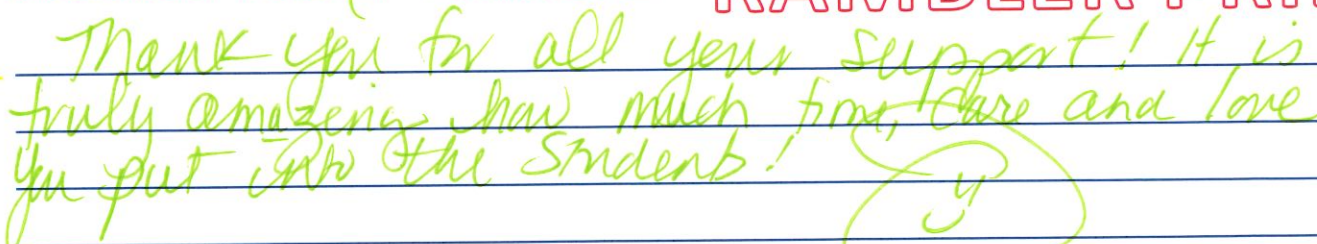 RAMBLER PRI
Thank you for all your support! It is
truly amazing how much time, care and love
you put into the students!